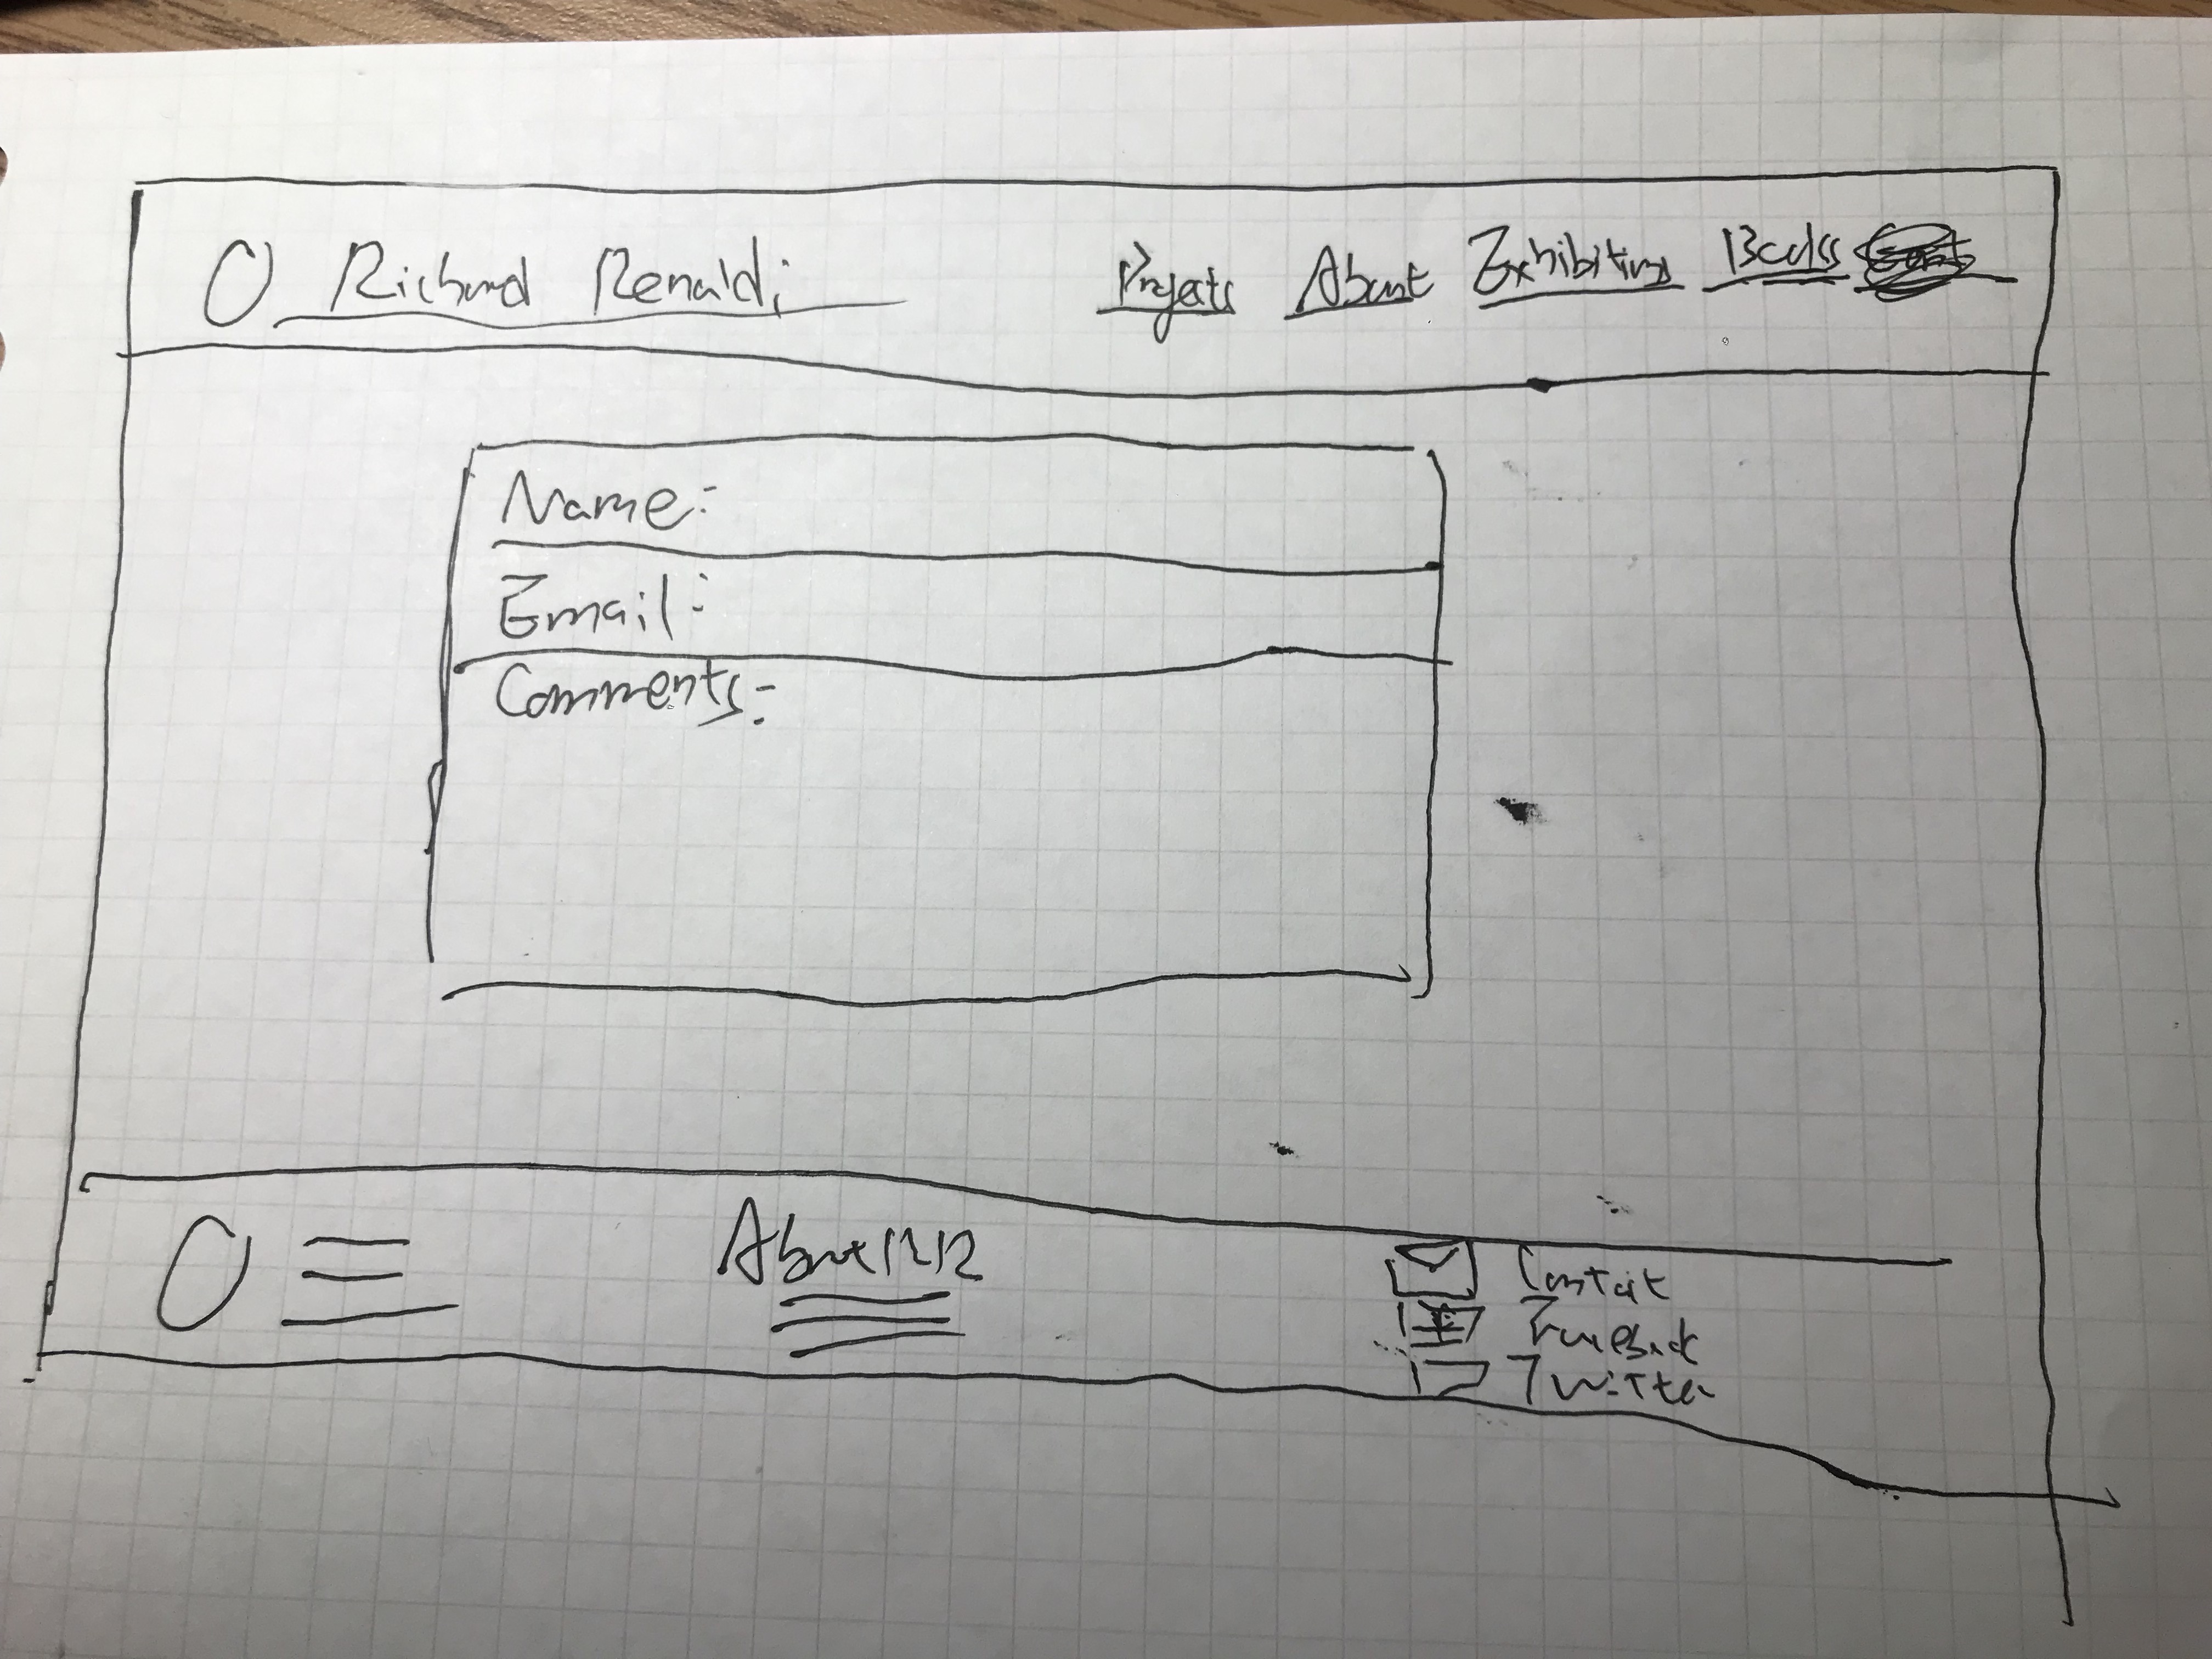 Richard Renaldi Projects About Exhibitions Books
Name:
Email:
Comments:
About RR
Contact
Facebook
Twitter